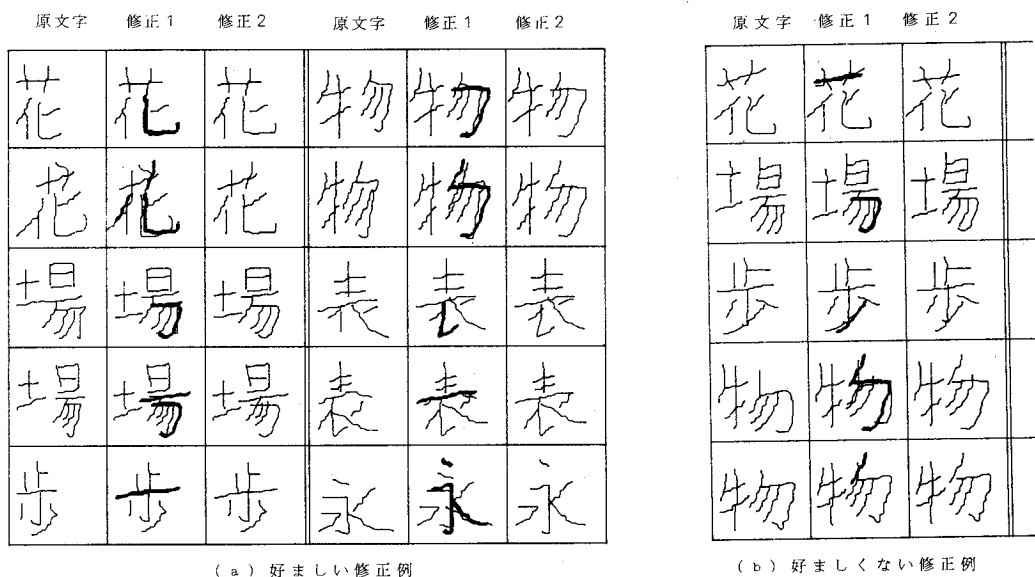 原文字 修正1 修正2 原文字 修正1 修正2
花 花 花 物 物 物
花 花 花 物 物 物
場 場 場 表 表 表
場 場 場 表 表 表
歩 歩 歩 永 永 永
(a) 好ましい修正例
原文字 修正1 修正2
花 花 花
場 場 場
歩 歩 歩
物 物 物
物 物 物
(b) 好ましくない修正例